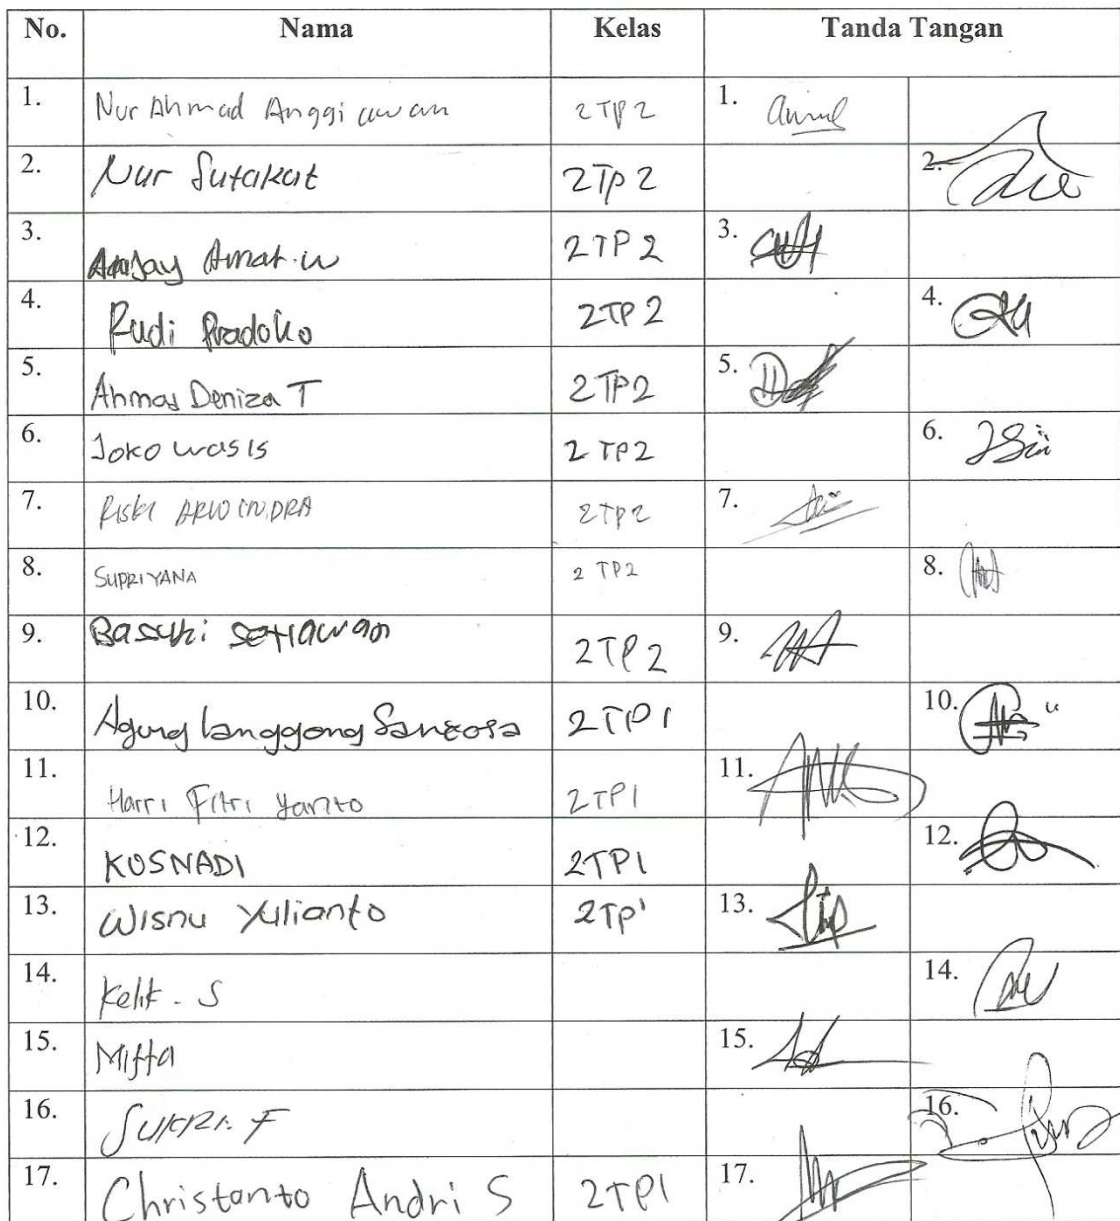 No. Nama Kelas Tanda Tangan
1. Nur Ahmad Anggiawan 2TP2 1.
2. Nur Sutakat 2TP2 2.
3. Anjay Amat.w 2TP2 3.
4. Rudi Pradoko 2TP2 4.
5. Ahmad Deniza T 2TP2 5.
6. Joko wasis 2TP2 6.
7. Riski 2TP2 7.
8. SUPRIYANA 2TP2 8.
9. Basuki setiawan 2TP2 9.
10. Agung langgong Santosa 2TP1 10.
11. Harri Fitri Yanto 2TP1 11.
12. KUSNADI 2TP1 12.
13. Wisnu Yulianto 2TP1 13.
14. Kelik. S 14.
15. Mifta 15.
16. F 16.
17. Christanto Andri S 2TP1 17.